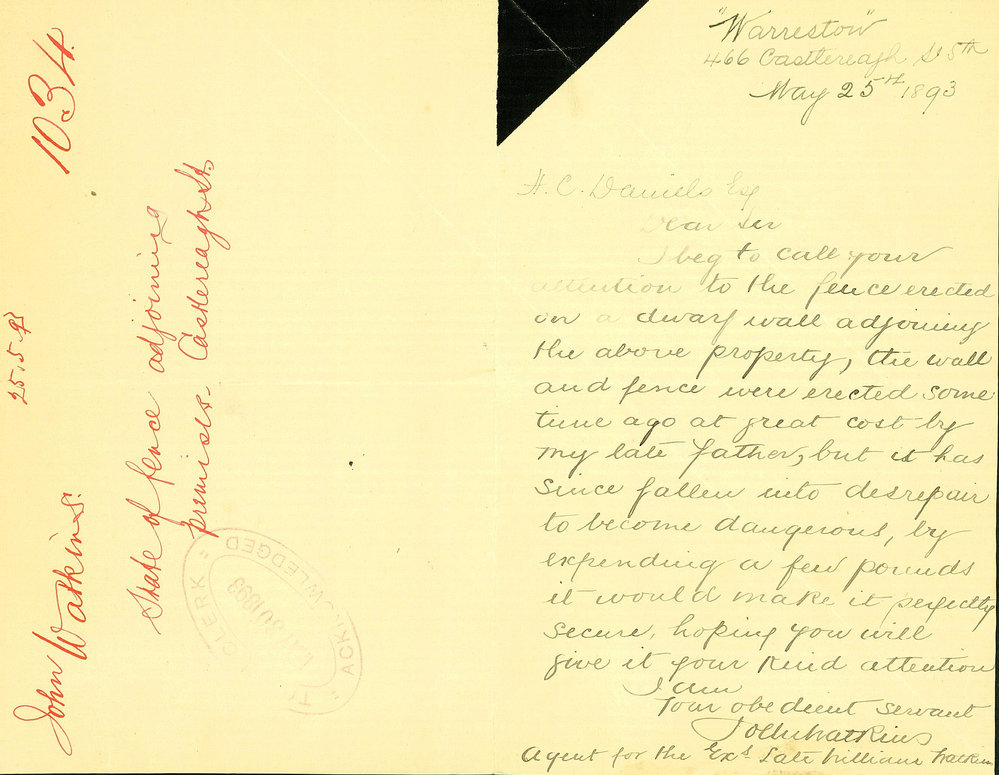 "Warrestow"
466 Castlereagh St Sth
May 25th 1893
H. C. Daniels Esq
Dear Sir
I beg to call your
attention to the fence erected
on a dwarf wall adjoining
the above property, the wall
and fence were erected some
time ago at great cost by
my late father, but it has
since fallen into desrepair
to become dangerous, by
expending a few pounds
it would make it perfectly
secure, hoping you will
give it your kind attention
I am
Your obedient servant
John Watkins
Agent for the Exs Late William Watkins
John Watkins.
25.5.93
1034
State of fence adjoining
premises - Castlereagh St.
CLERK
1893
ACKNOWLEDGED